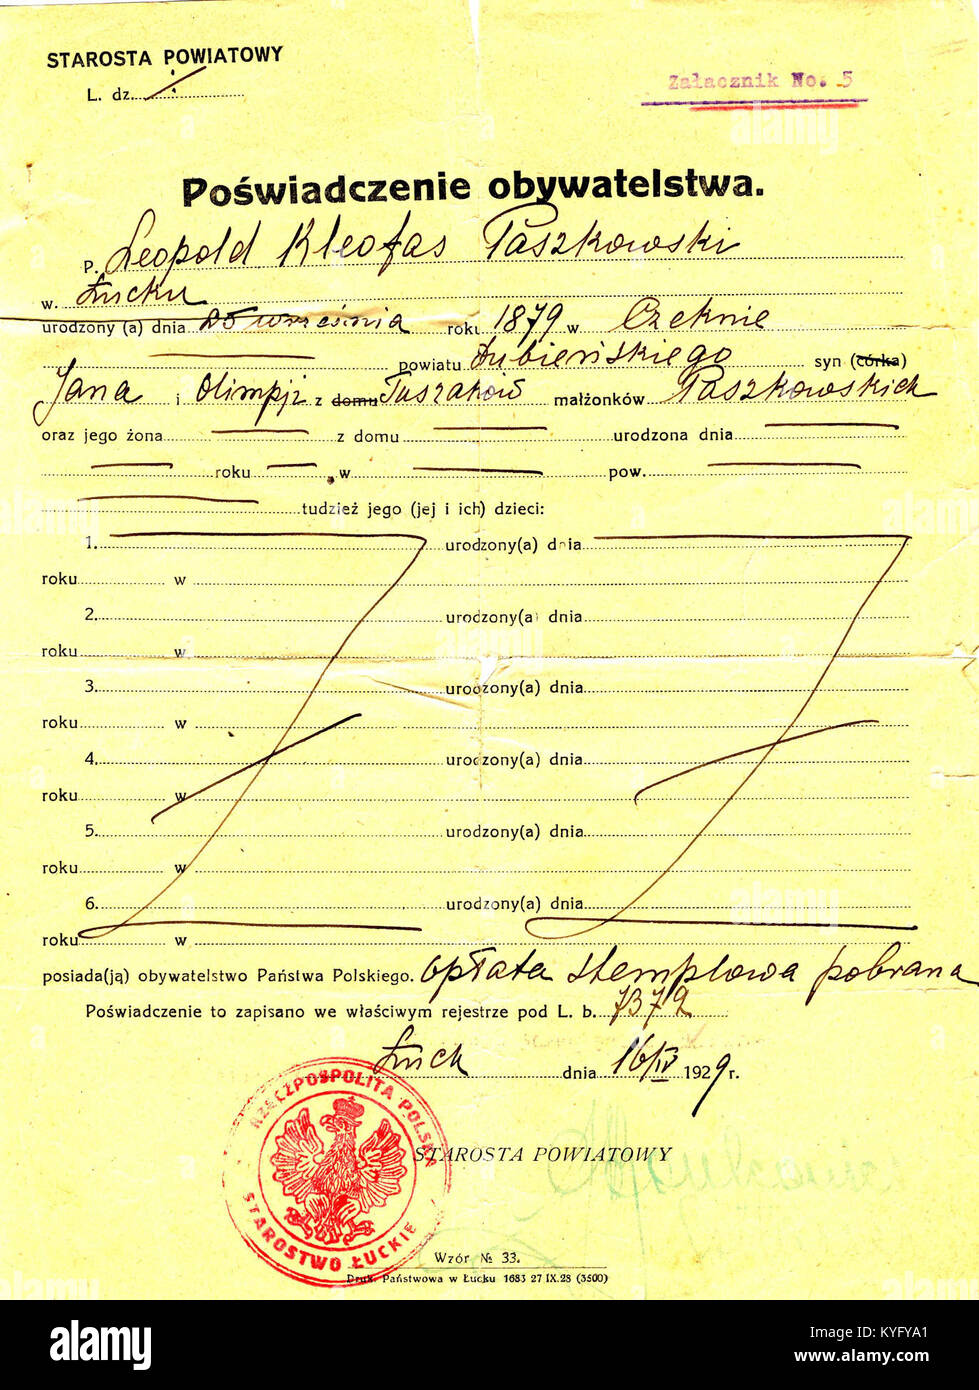 STAROSTA POWIATOWY
L. dz.
Załacznik No. 5
Poświadczenie obywatelstwa.
P. Leopold Kleofas Paszkowski
w. Łucku
urodzony (a) dnia 25 września roku 1879 w Czeknie
powiatu Dubieńskiego syn (córka)
Jana i Olimpji z domu Tuszaków małżonków Paszkowskich
oraz jego żona z domu urodzona dnia
roku w pow.
tudzież jego (jej i ich) dzieci:
1. urodzony(a) dnia
roku w
2. urodzony(a) dnia
roku w
3. urodzony(a) dnia
roku w
4. urodzony(a) dnia
roku w
5. urodzony(a) dnia
roku w
6. urodzony(a) dnia
roku w
posiada(ją) obywatelstwo Państwa Polskiego. opłata stemplowa pobrana
Poświadczenie to zapisano we właściwym rejestrze pod L. b. 7372
Łuck dnia 16/IV 1929 r.
RZECZPOSPOLITA POLSKA
STAROSTWO ŁUCKIE
STAROSTA POWIATOWY
Wzór № 33.
Druk. Państwowa w Łucku 1683 27 IX.28 (3500)
alamy
Image ID: KYFYA1
www.alamy.com